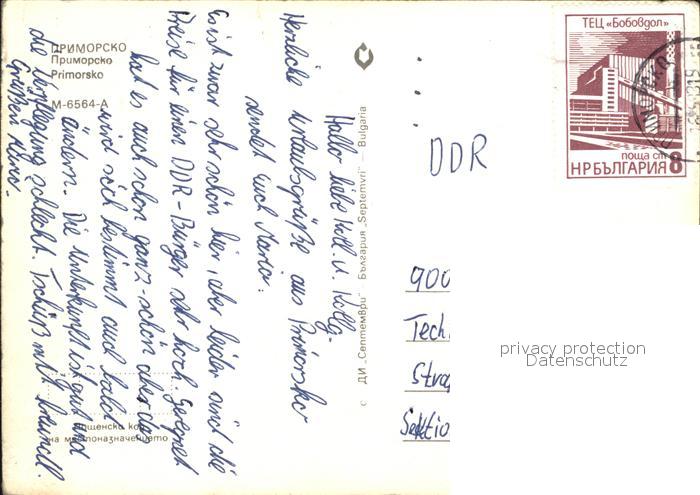 ПРИМОРСКО
Приморско
Primorsko
М-6564-А
Hallo liebe Koll. u. Kollg.
Herzliche Urlaubsgrüße aus Primorsko
sendet euch Mario.
Es ist zwar sehr schön hier, aber leider sind die
Preise für einen DDR-Bürger sehr hoch. Geregnet
hat es auch schon ganz schön aber das
wird sich bestimmt auch bald
ändern. Die Unterkunft ist gut und
die Verpflegung schlecht. Tschüß mit freundl.
Grüßen
Пощенски код
на местоназначението
© ДИ „Септември" — България „Septemvri" — Bulgaria
ТЕЦ „Бобовдол"
поща ст
НР БЪЛГАРИЯ 8
DDR
900
Tech
Stra
Sektio
privacy protection
Datenschutz